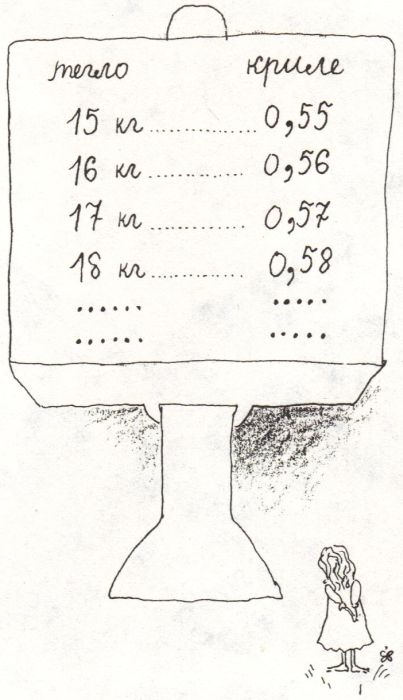 тегло криле
15 кг............... 0,55
16 кг............... 0,56
17 кг............... 0,57
18 кг............... 0,58
...... .....
...... .....